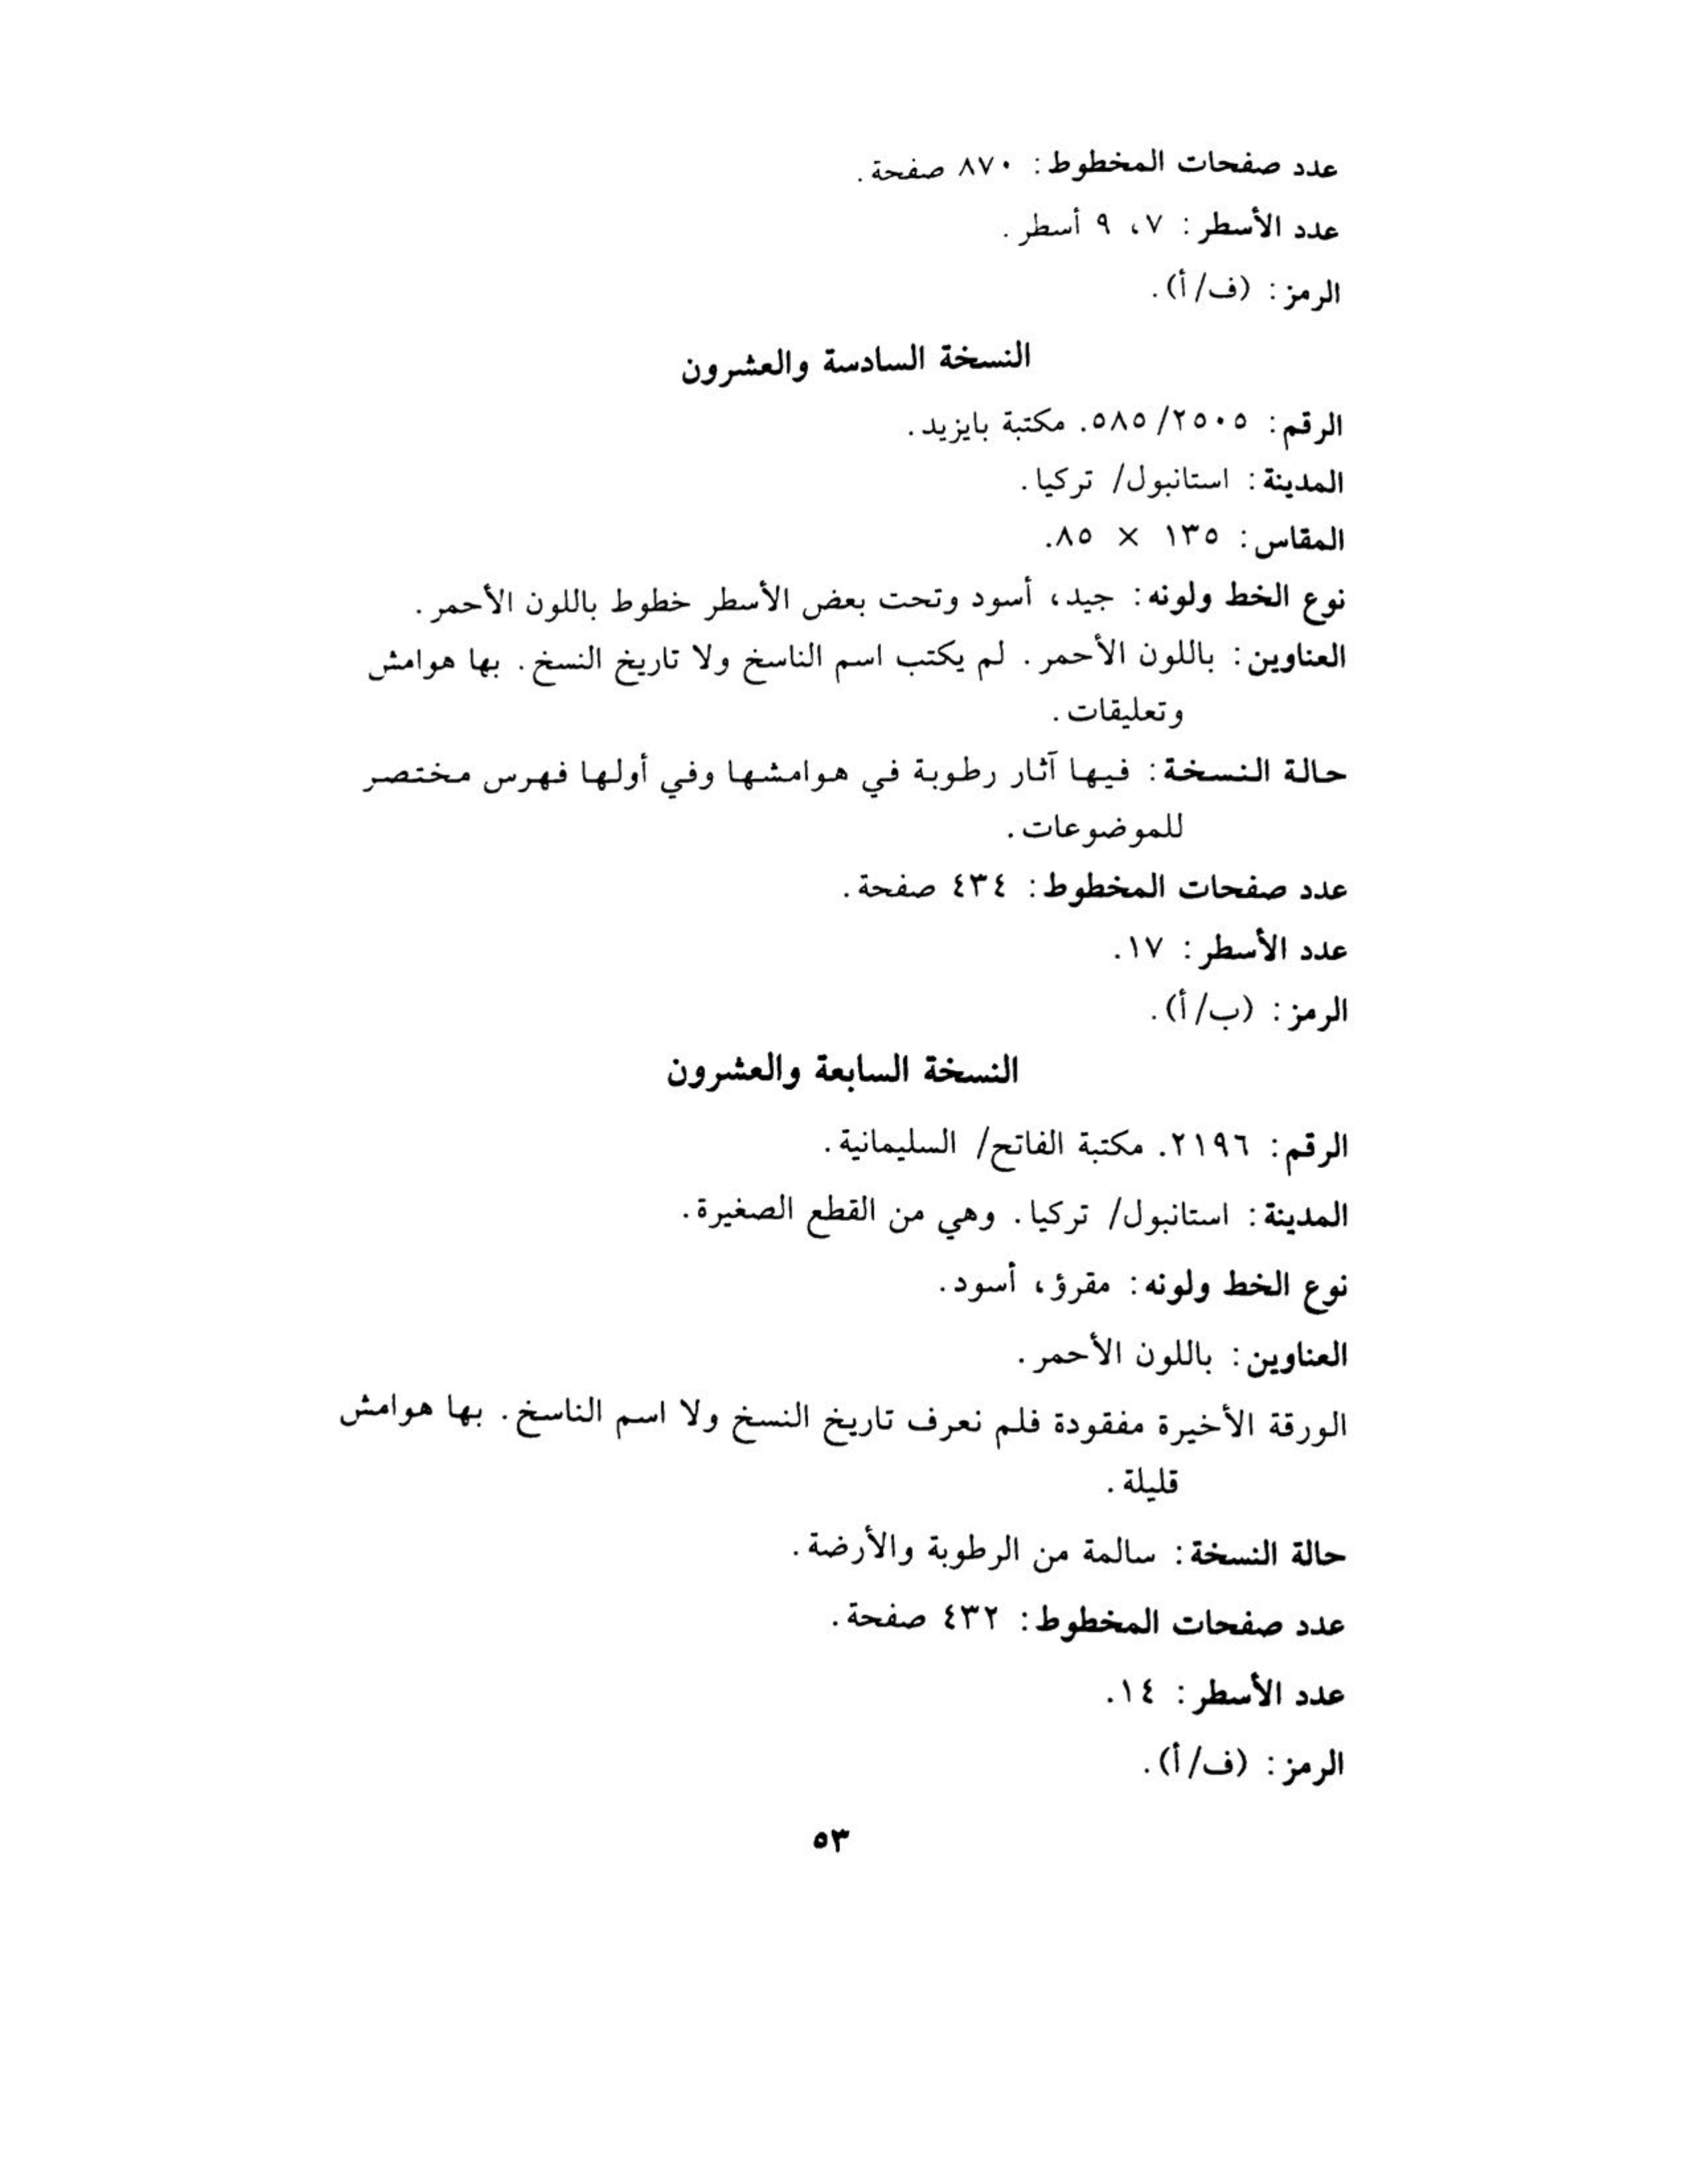 عدد صفحات المخطوط: ٨٧٠ صفحة.
عدد الأسطر: ٧، ٩ أسطر.
الرمز: (ف/أ).
النسخة السادسة والعشرون
الرقم: ٥٨٥/٢٥٠٥. مكتبة بايزيد.
المدينة: استانبول/ تركيا.
المقاس: ١٣٥ × ٨٥.
نوع الخط ولونه: جيد، أسود وتحت بعض الأسطر خطوط باللون الأحمر.
العناوين: باللون الأحمر. لم يكتب اسم الناسخ ولا تاريخ النسخ. بها هوامش
وتعليقات.
حالة النسخة: فيها آثار رطوبة في هوامشها وفي أولها فهرس مختصر
للموضوعات.
عدد صفحات المخطوط: ٤٣٤ صفحة.
عدد الأسطر: ١٧.
الرمز: (ب/أ).
النسخة السابعة والعشرون
الرقم: ٢١٩٦. مكتبة الفاتح/ السليمانية.
المدينة: استانبول/ تركيا. وهي من القطع الصغيرة.
نوع الخط ولونه: مقرؤ، أسود.
العناوين: باللون الأحمر.
الورقة الأخيرة مفقودة فلم نعرف تاريخ النسخ ولا اسم الناسخ. بها هوامش
قليلة.
حالة النسخة: سالمة من الرطوبة والأرضة.
عدد صفحات المخطوط: ٤٣٢ صفحة.
عدد الأسطر: ١٤.
الرمز: (ف/أ).
٥٣